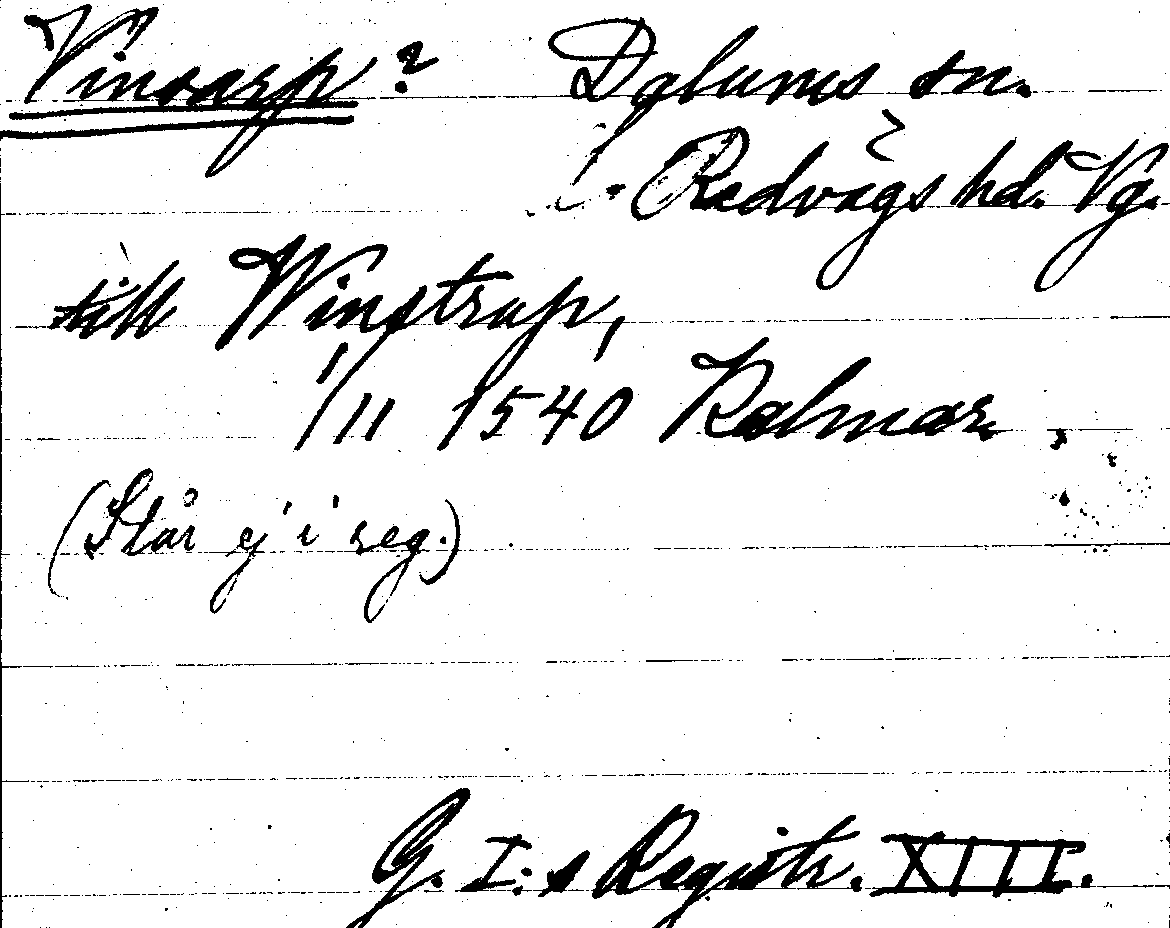 Vinsarp? Dalums sn.
Redvägs hd. Vg.
till Winstrup,
1/11 1540 Kalmar.
(Står ej i reg.)
G. I:s Registr. XIII.